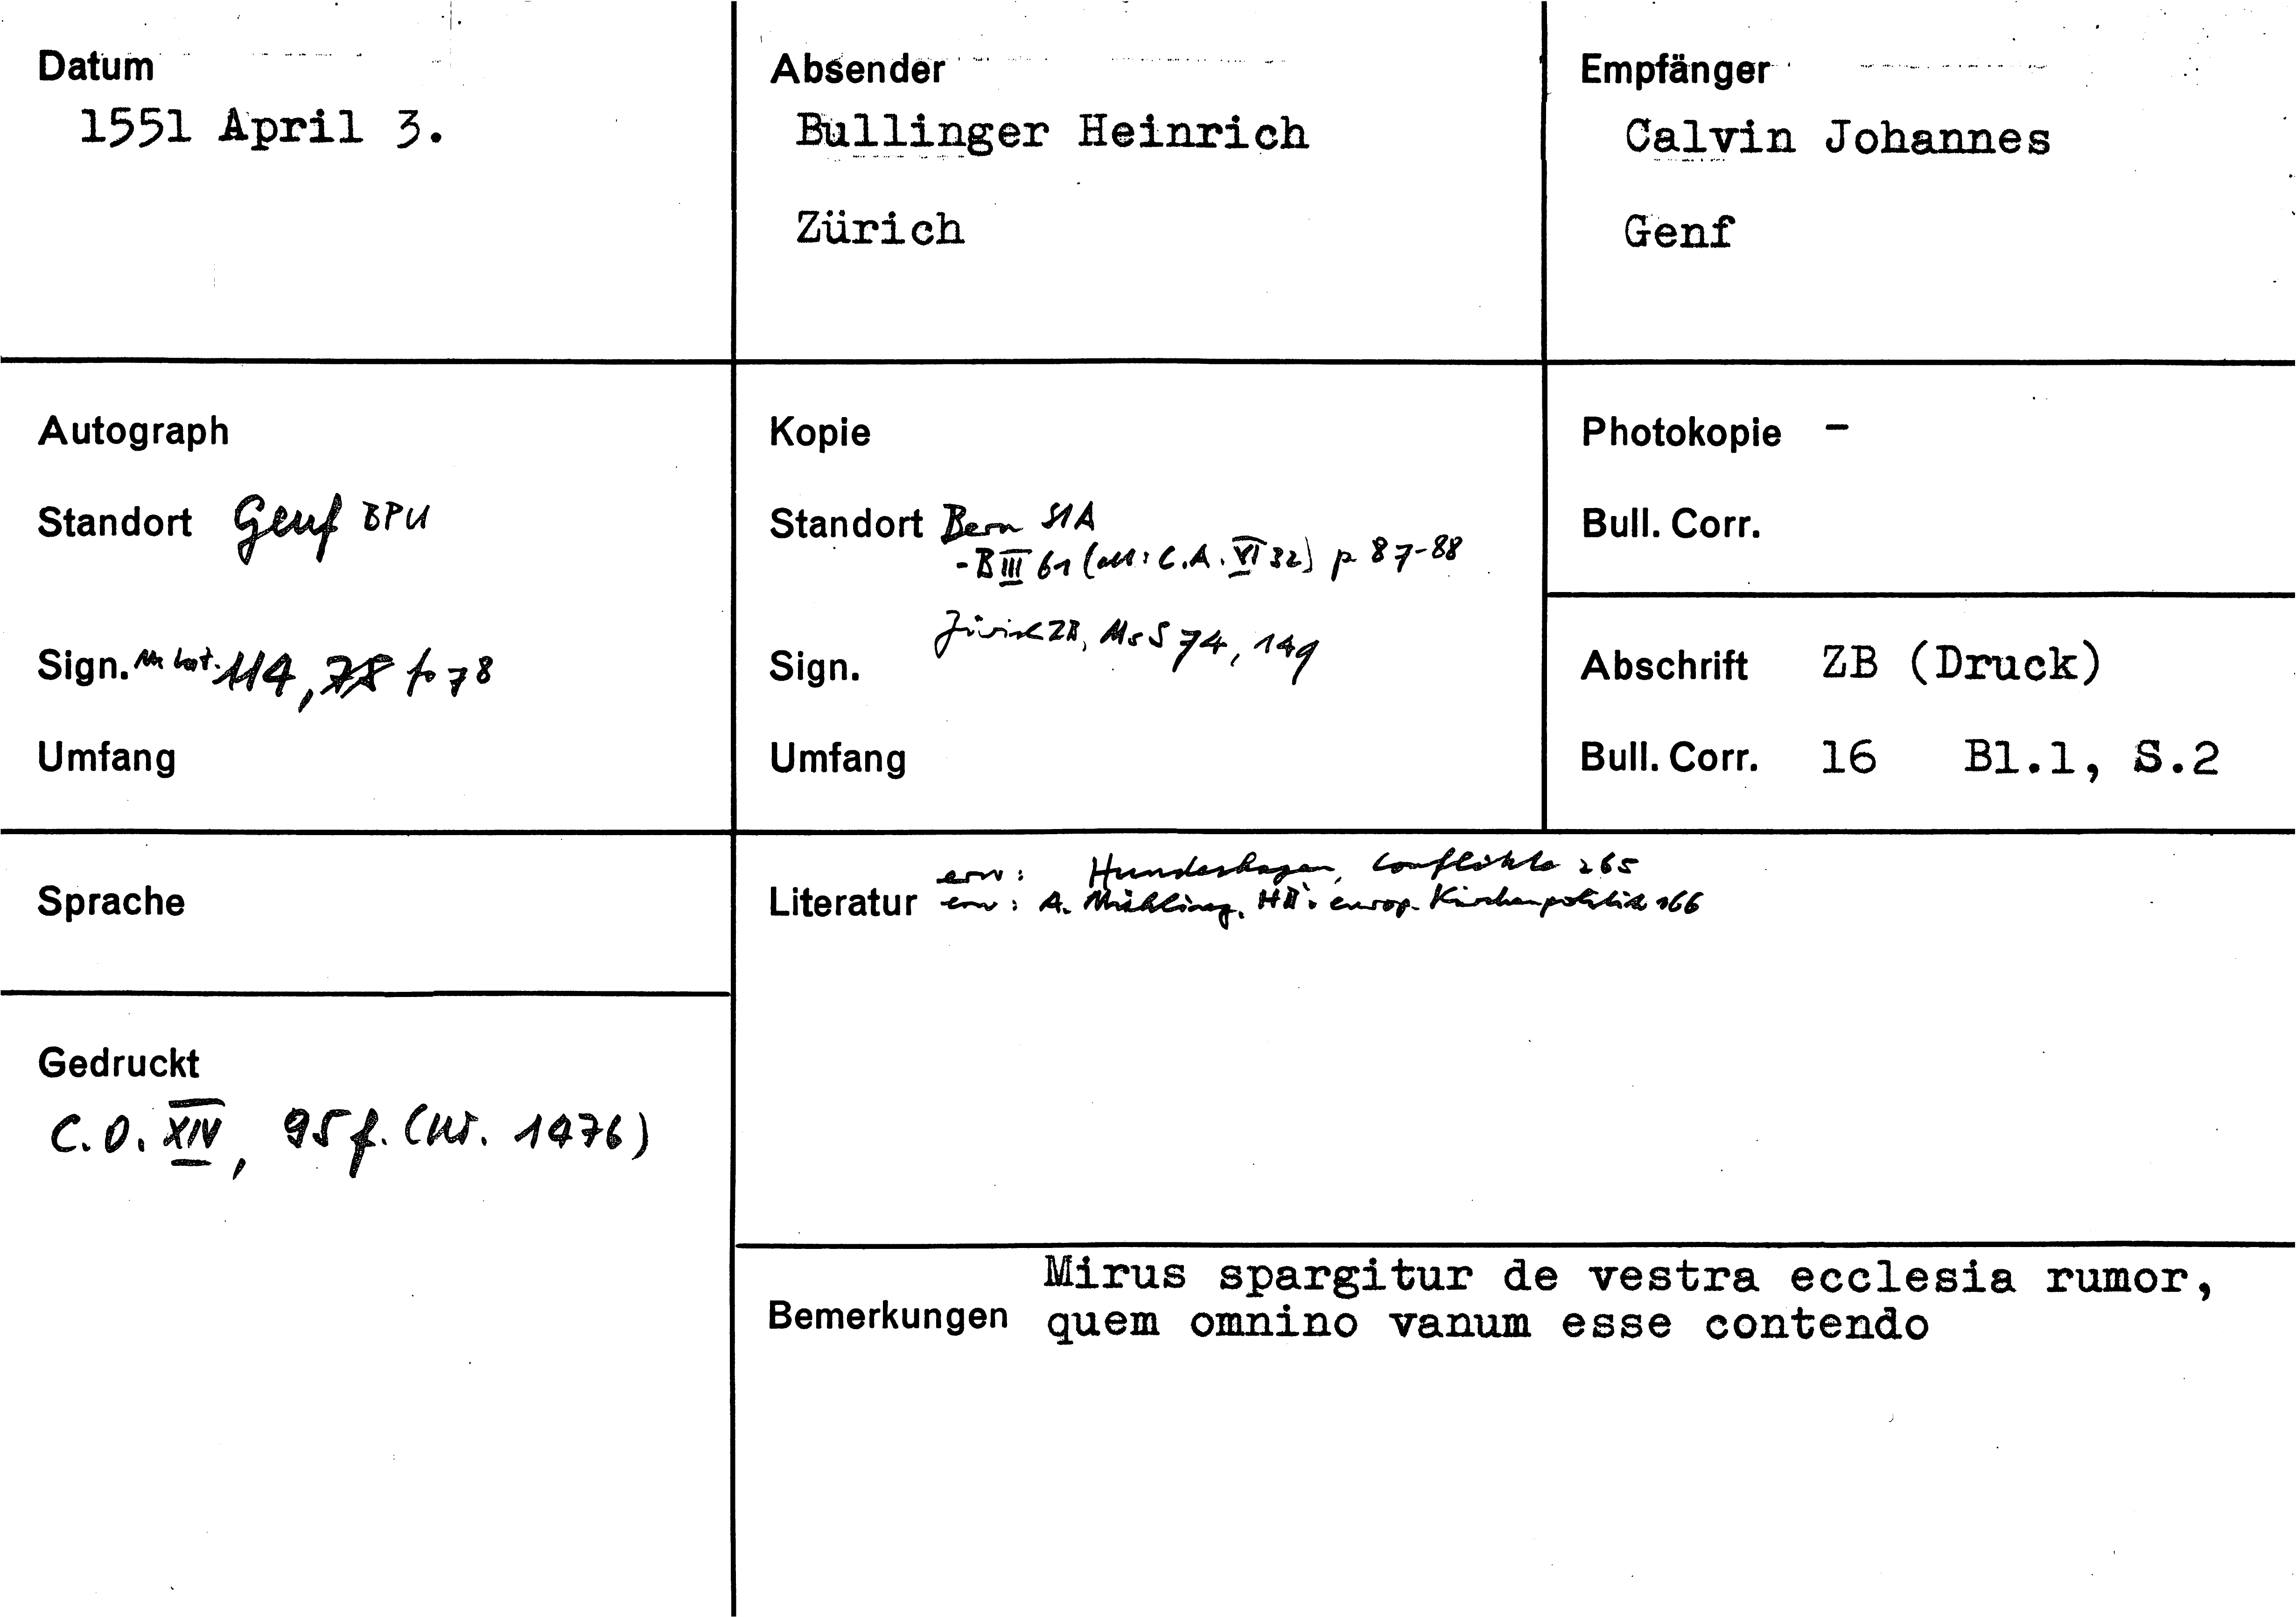 Datum
1551 April 3.
Absender
Bullinger Heinrich
Zürich
Empfänger
Calvin Johannes
Genf
Autograph
Standort Genf BPU
Sign. Ms lat. 114, 78 fo 78
Umfang
Kopie
Standort Bern StA
- B III 61 (alt: C.A. VI 32) p 87-88
Zürich ZB, Ms S 74, 149
Sign.
Umfang
Photokopie -
Bull. Corr.
Abschrift ZB (Druck)
Bull. Corr. 16 Bl.1, S.2
Sprache
Gedruckt
C.O. XIV, 95 f. (Nr. 1476)
erw: Hundeshagen, Conflikte 265
Literatur erw: A. Mühling, HB's europ. Kirchenpolitik 166
Mirus spargitur de vestra ecclesia rumor,
Bemerkungen quem omnino vanum esse contendo